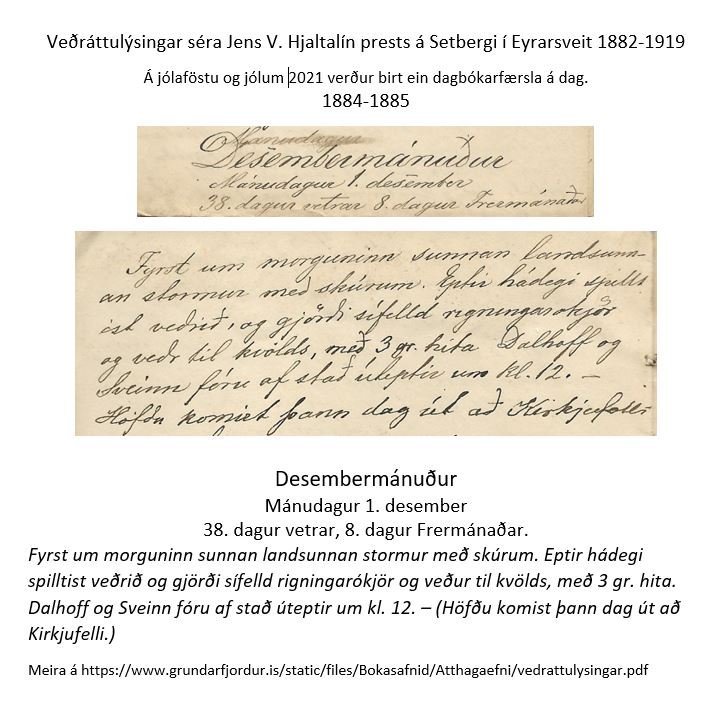 Veðráttulýsingar séra Jens V. Hjaltalín prests á Setbergi í Eyrarsveit 1882-1919
Á jólaföstu og jólum 2021 verður birt ein dagbókarfærsla á dag.
1884-1885
Mánudagur
Desembermánuður
Mánudagur 1. desember
38. dagur vetrar 8. dagur Frermánaðar
Fyrst um morguninn sunnan landsunn-
an stormur með skúrum. Eptir hádegi spillt
ist veðrið, og gjörði sífelld rigningarokjör
og veðr til kvölds, með 3 gr. hita Dalhoff og
Sveinn fóru af stað úteptir um kl. 12. –
Höfðu komist þann dag út að Kirkjufelli
Desembermánuður
Mánudagur 1. desember
38. dagur vetrar, 8. dagur Frermánaðar.
Fyrst um morguninn sunnan landsunnan stormur með skúrum. Eptir hádegi
spilltist veðrið og gjörði sífelld rigningarókjör og veður til kvölds, með 3 gr. hita.
Dalhoff og Sveinn fóru af stað úteptir um kl. 12. – (Höfðu komist þann dag út að
Kirkjufelli.)
Meira á https://www.grundarfjordur.is/static/files/Bokasafnid/Atthagaefni/vedrattulysingar.pdf